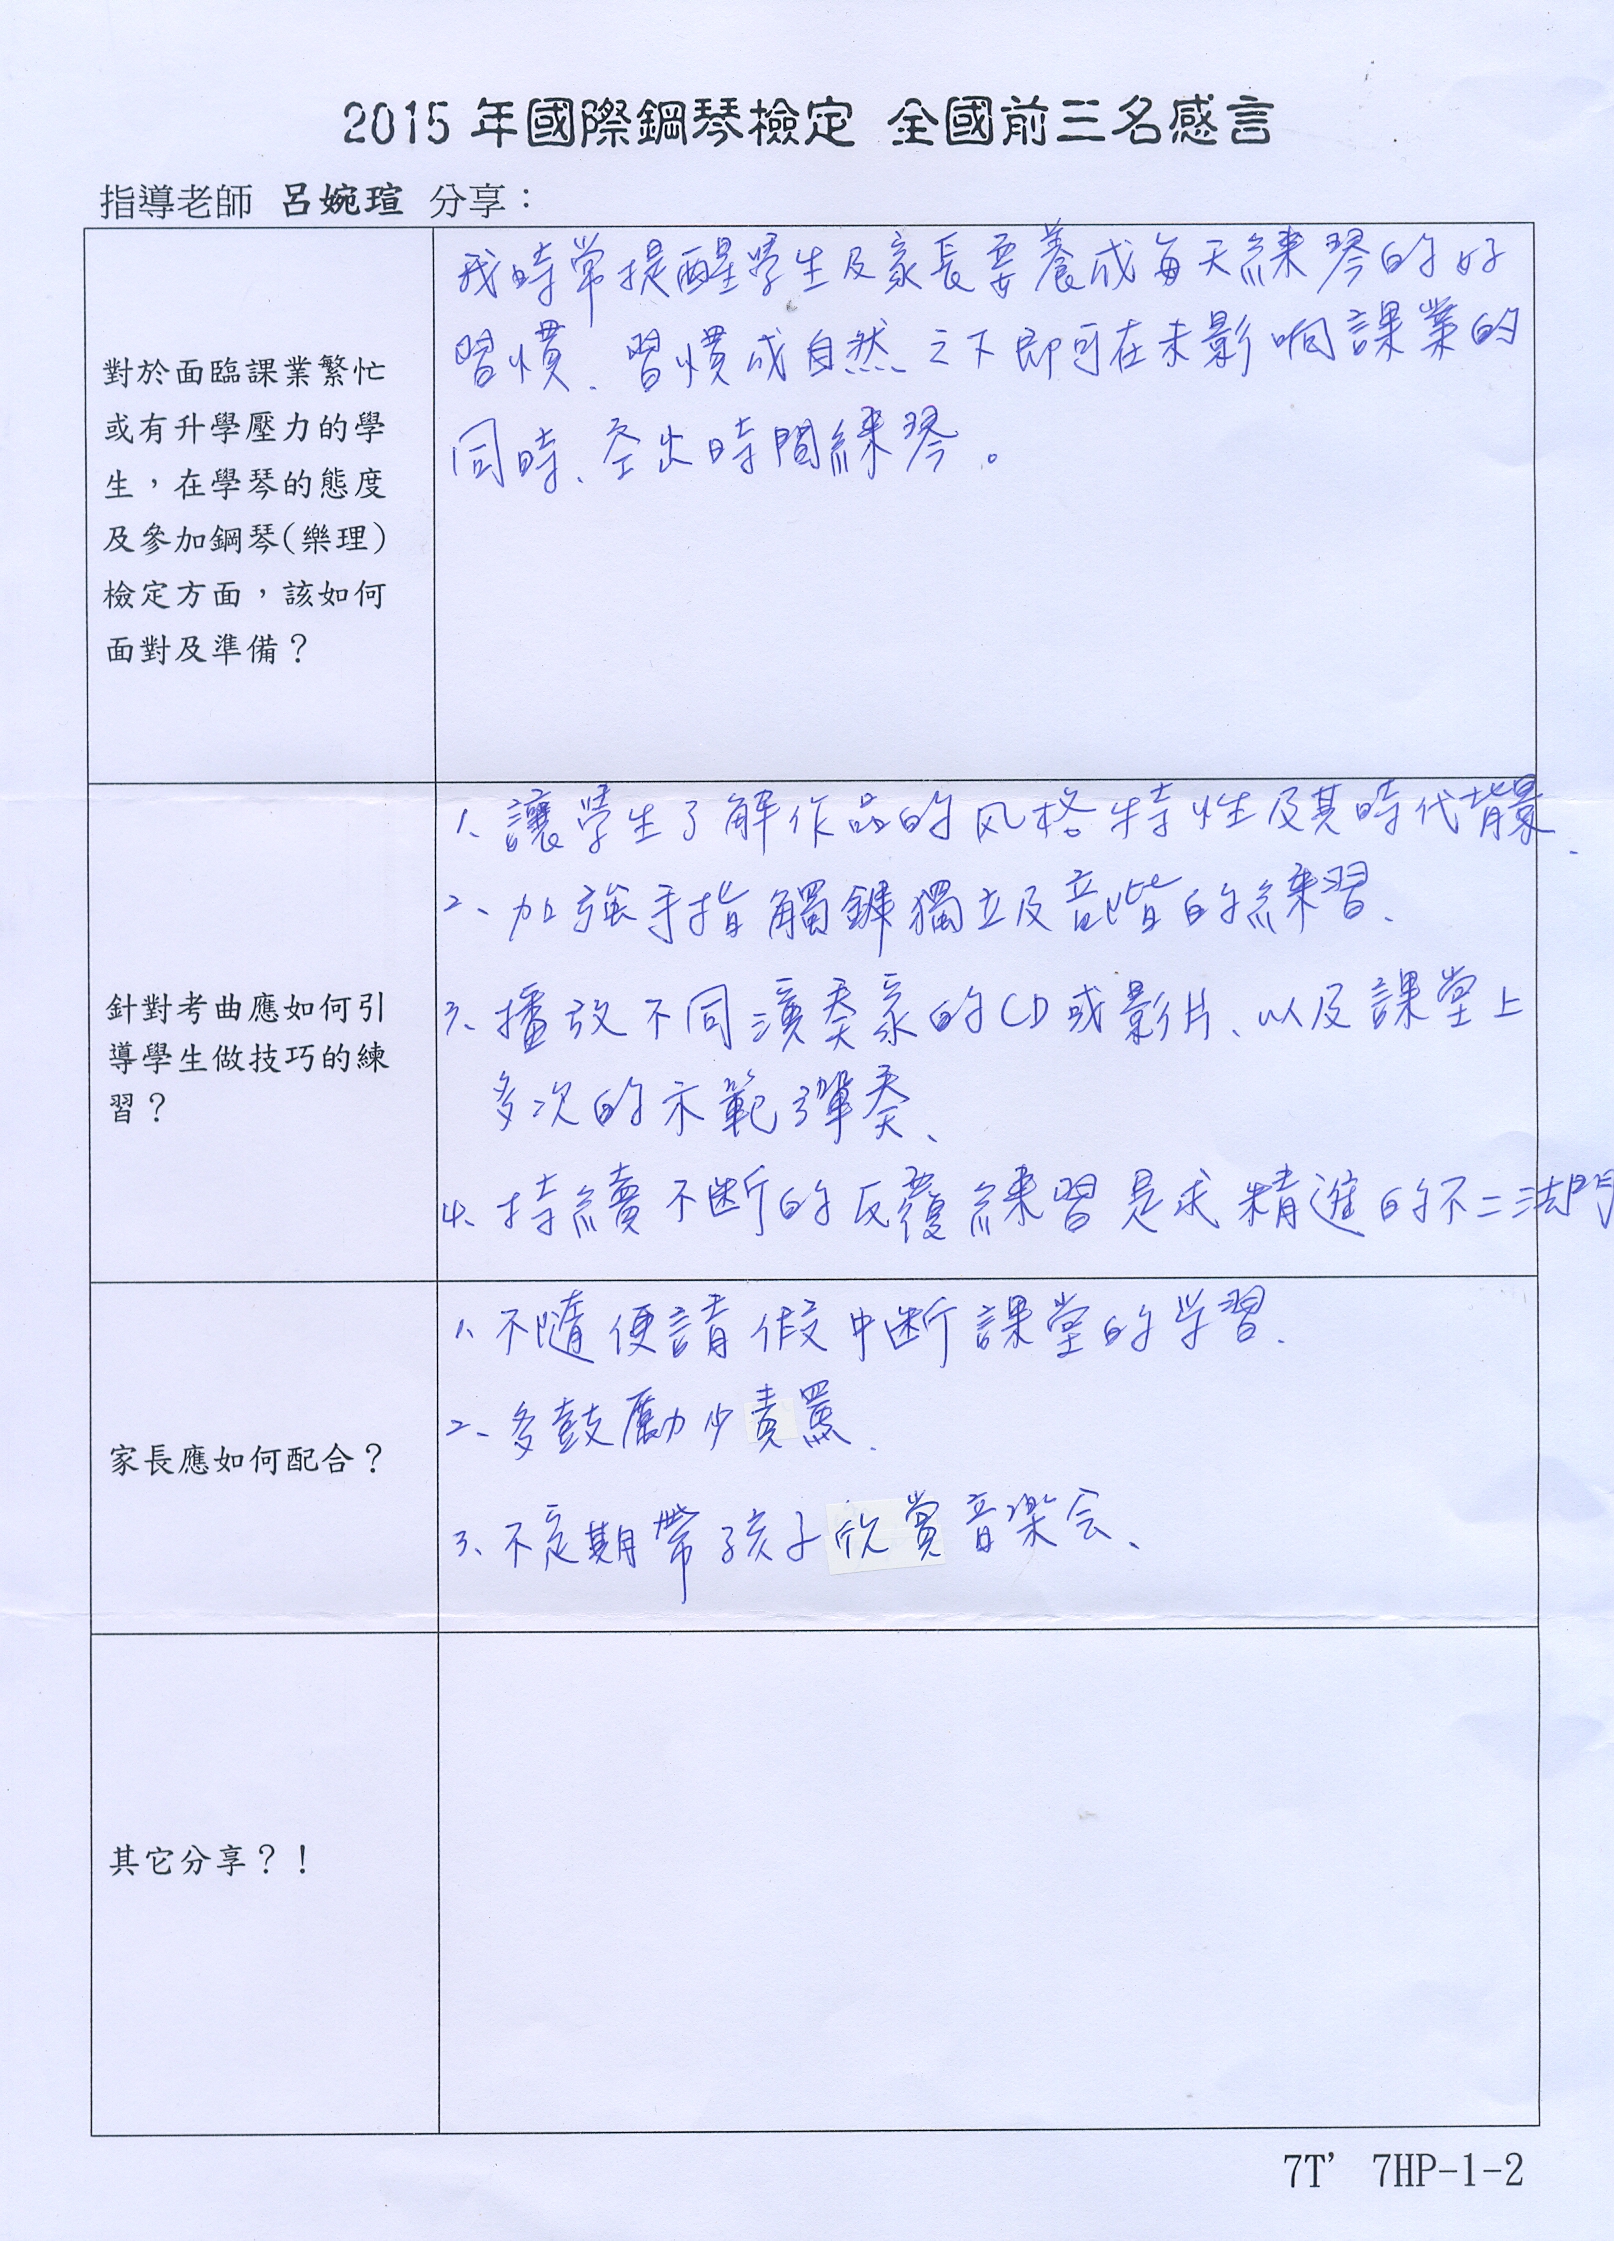 2015 年國際鋼琴檢定 全國前三名感言
指導老師 呂婉瑄 分享：
對於面臨課業繁忙
或有升學壓力的學
生，在學琴的態度
及參加鋼琴(樂理)
檢定方面，該如何
面對及準備？
我時常提醒學生及家長要養成每天練琴的好
習慣、習慣成自然之下即可在未影响課業的
同時、空出時間練琴。
針對考曲應如何引
導學生做技巧的練
習？
1、讓學生了解作品的风格特性及其時代背景、
2、加強手指觸鍵獨立及音階的練習、
3、播放不同演奏家的CD或影片、以及課堂上
多次的示範彈奏、
4、持續不断的反覆練習是求精進的不二法門
家長應如何配合？
1、不隨便請假中断課堂的学習、
2、多鼓勵少責罵、
3、不定期帶孩子欣賞音楽会、
其它分享？！
7T’ 7HP-1-2